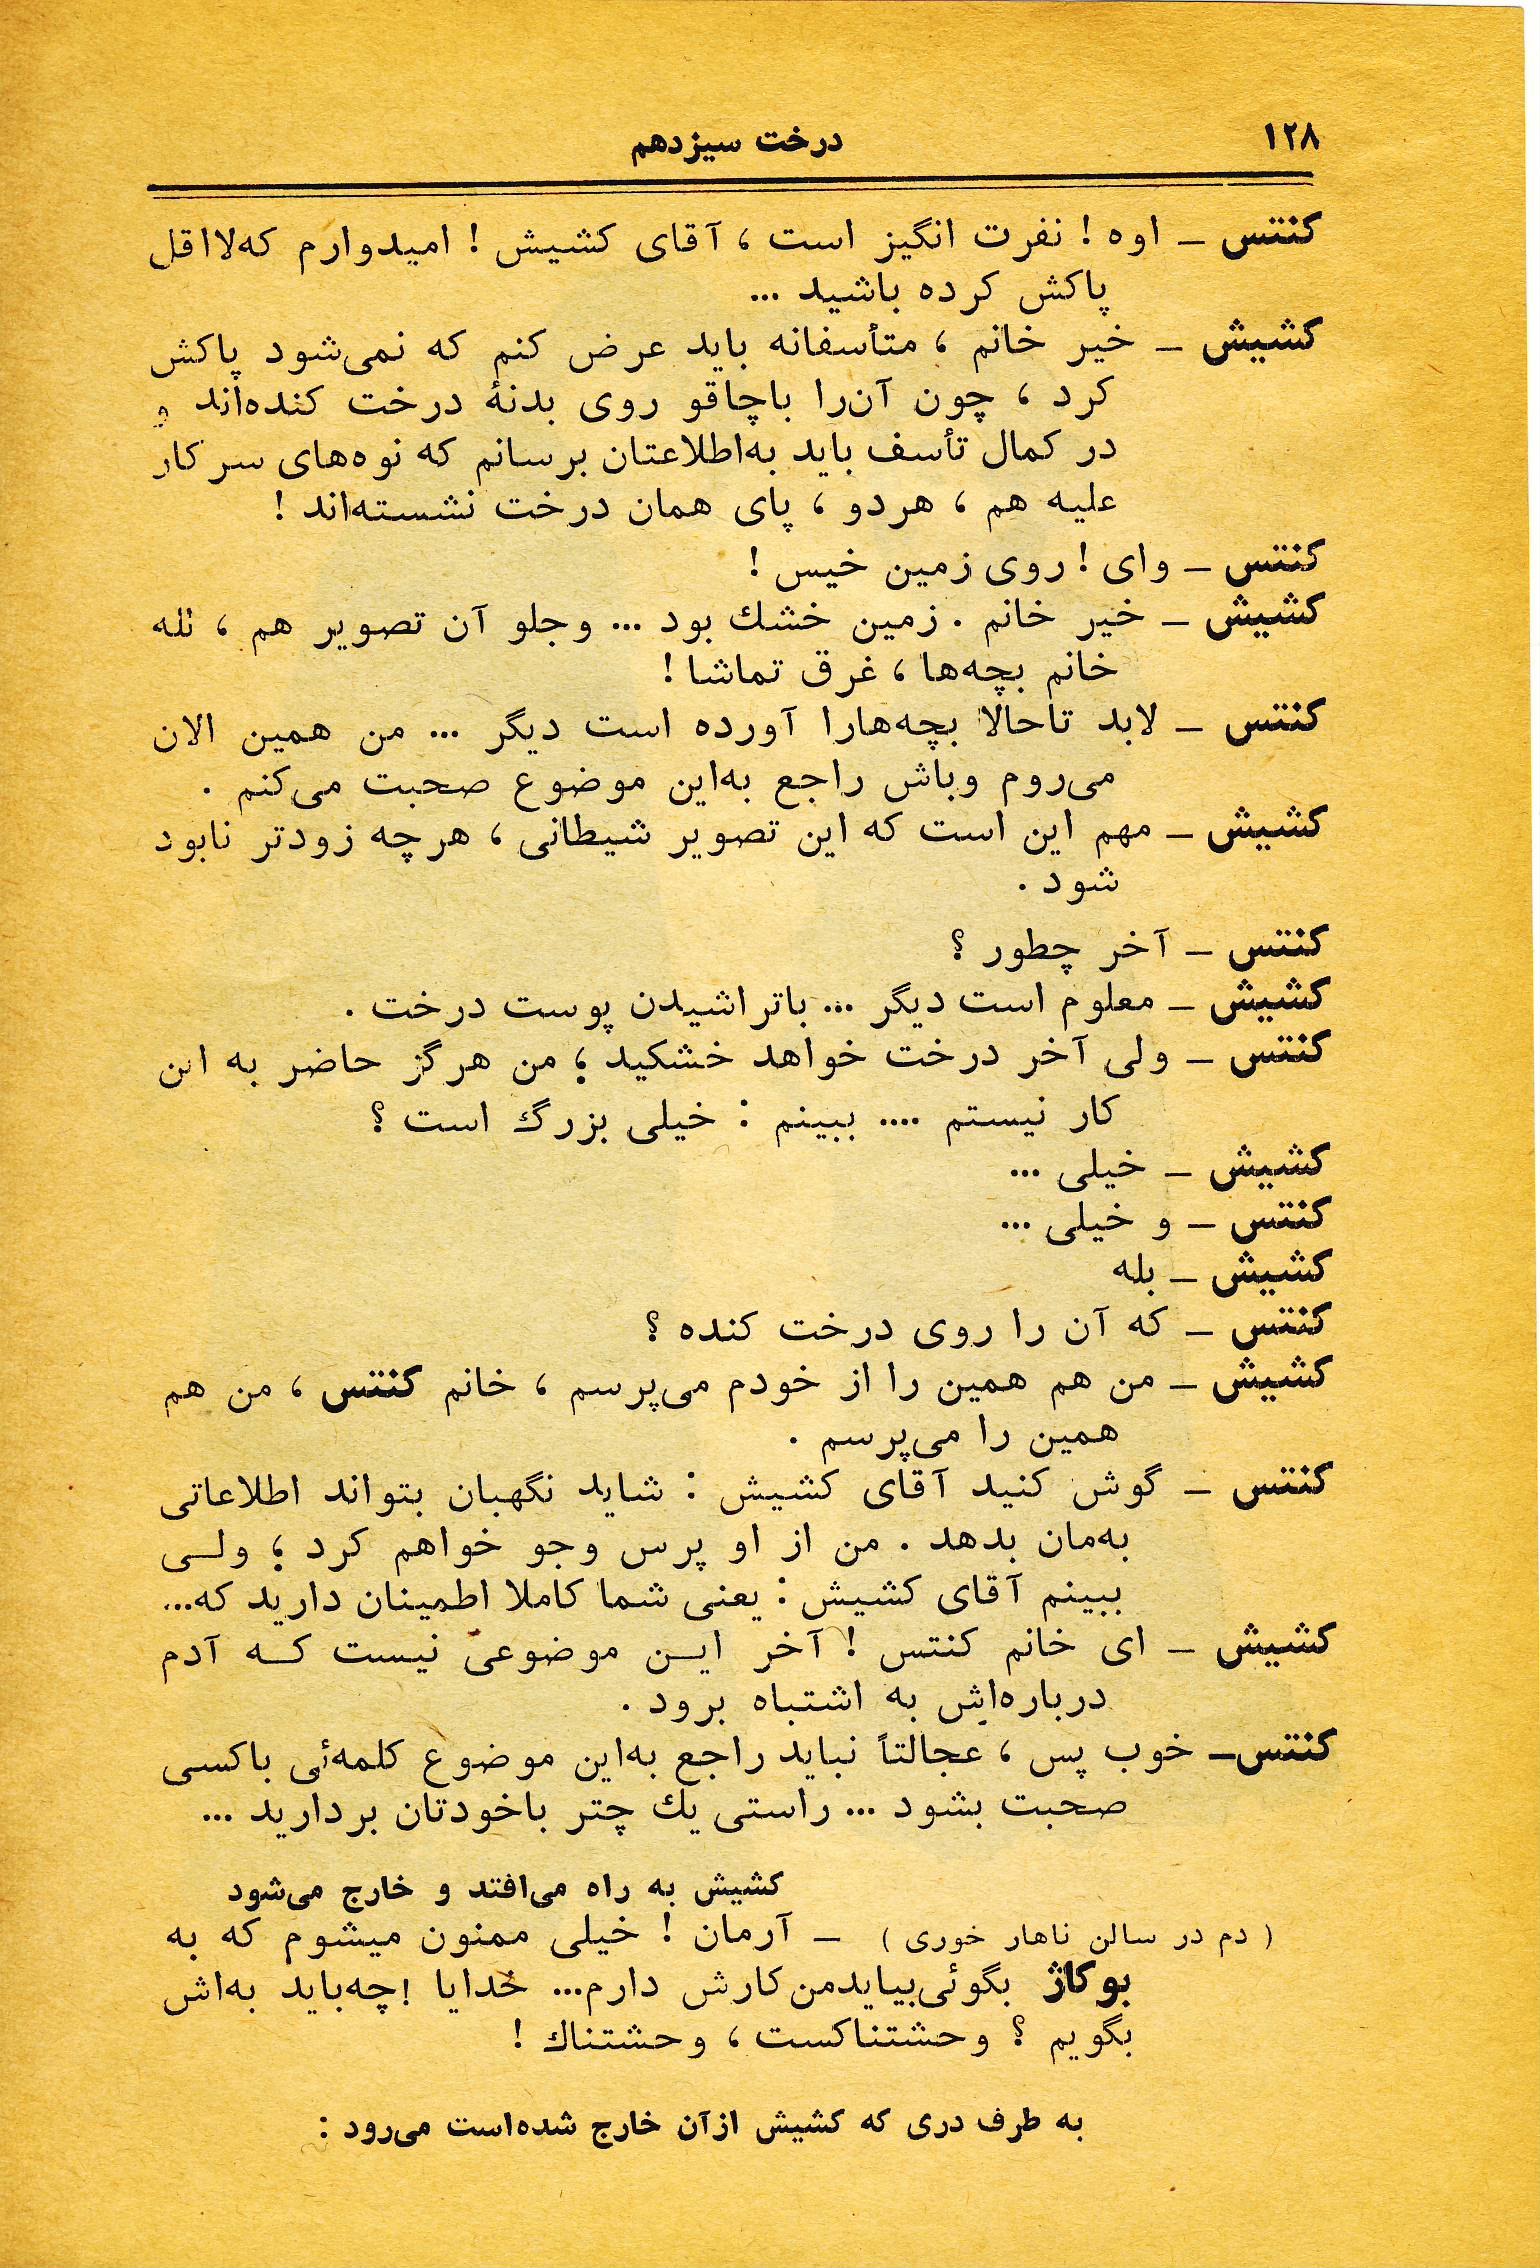 ۱۲۸
درخت سیزدهم
کنتس – اوه ! نفرت انگیز است ، آقای کشیش ! امیدوارم که‌لااقل
پاکش کرده باشید ...
کشیش – خیر خانم ، متأسفانه باید عرض کنم که نمی‌شود پاکش
کرد ، چون آن‌را باچاقو روی بدنهٔ درخت کنده‌اند و
در کمال تأسف باید به‌اطلاعتان برسانم که نوه‌های سرکار
علیه هم ، هردو ، پای همان درخت نشسته‌اند !
کنتس – وای ! روی زمین خیس !
کشیش – خیر خانم . زمین خشك بود ... وجلو آن تصویر هم ، لله
خانم بچه‌ها ، غرق تماشا !
کنتس – لابد تاحالا بچه‌هارا آورده است دیگر ... من همین الان
می‌روم وباش راجع به‌این موضوع صحبت می‌کنم .
کشیش – مهم این است که این تصویر شیطانی ، هرچه زودتر نابود
شود .
کنتس – آخر چطور ؟
کشیش – معلوم است دیگر ... باتراشیدن پوست درخت .
کنتس – ولی آخر درخت خواهد خشکید ؛ من هرگز حاضر به این
کار نیستم .... ببینم : خیلی بزرگ است ؟
کشیش – خیلی ...
کنتس – و خیلی ...
کشیش – بله
کنتس – که آن را روی درخت کنده ؟
کشیش – من هم همین را از خودم می‌پرسم ، خانم کنتس ، من هم
همین را می‌پرسم .
کنتس – گوش کنید آقای کشیش : شاید نگهبان بتواند اطلاعاتی
به‌مان بدهد . من از او پرس وجو خواهم کرد ؛ ولی
ببینم آقای کشیش : یعنی شما کاملا اطمینان دارید که...
کشیش – ای خانم کنتس ! آخر این موضوعی نیست که آدم
درباره‌اش به اشتباه برود .
کنتس– خوب پس ، عجالتاً نباید راجع به‌این موضوع کلمه‌ئی باکسی
صحبت بشود ... راستی یك چتر باخودتان بردارید ...
کشیش به راه می‌افتد و خارج می‌شود
( دم در سالن ناهار خوری ) – آرمان ! خیلی ممنون میشوم که به
بوکاژ بگوئی‌بیایدمن‌کارش دارم... خدایا !چه‌باید به‌اش
بگویم ؟ وحشتناکست ، وحشتناك !
به طرف دری که کشیش ازآن خارج شده‌است می‌رود :